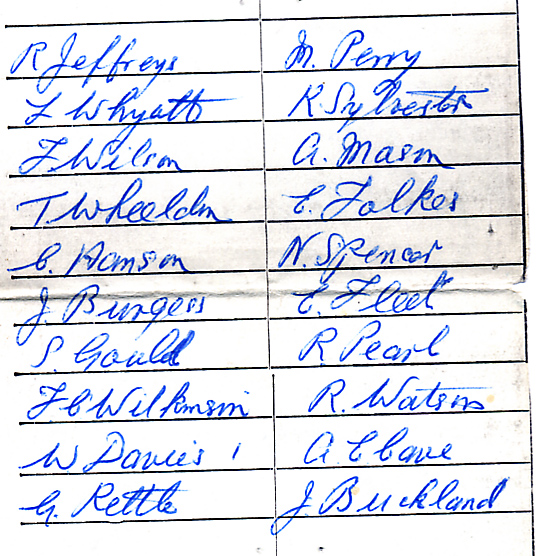 R Jeffreys M. Perry
L Whyatt K Sylvester
F. Wilson A. Mason
T. Wheeldon E. Folkes
C. Hanson N. Spencer
J. Burgess E. Fleet
S. Gould R. Pearl
F C Wilkinson R. Watson
W Davies A E Cave
G. Kettle J Buckland